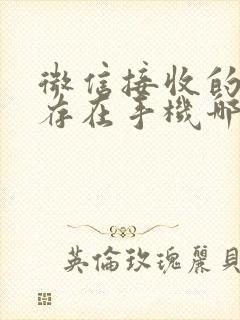 微信接收的
存在手機哪
英倫玫瑰麗貝